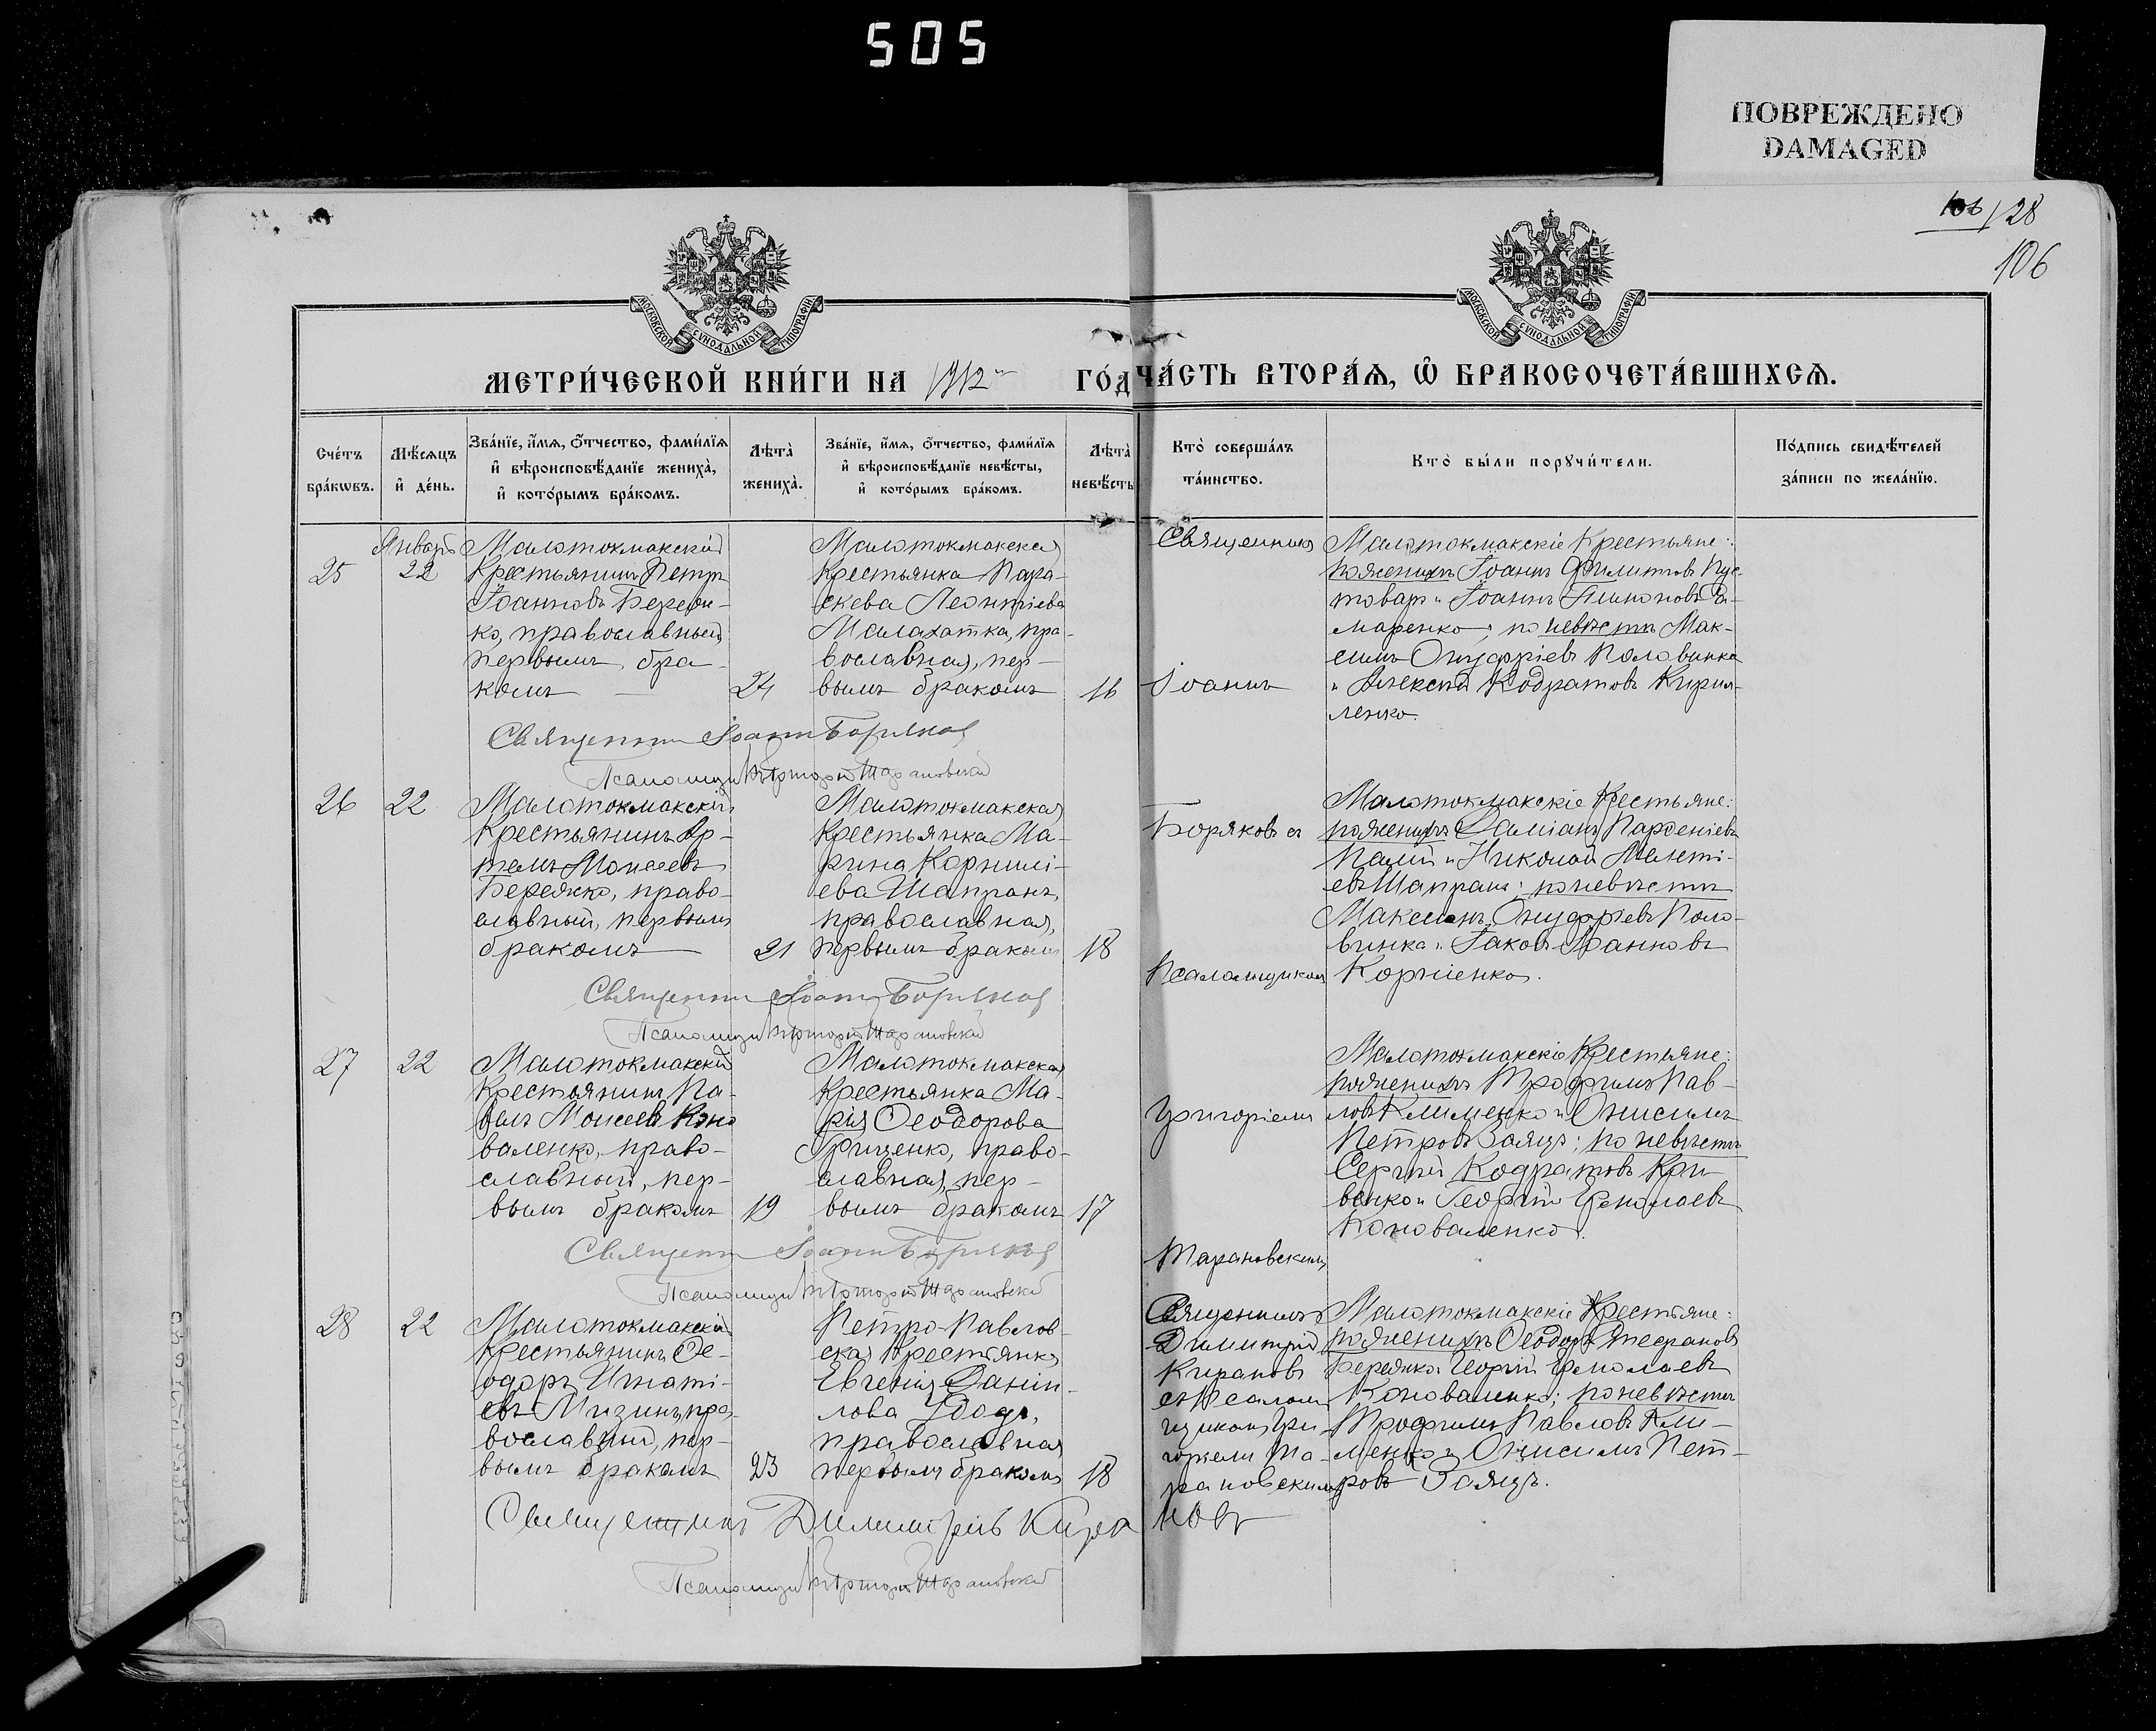 505
ПОВРЕЖДЕНО
DAMAGED
128
106
МОСКОВСКОЙ СѴНОДАЛЬНОЙ ТИПОГРАФІИ
МОСКОВСКОЙ СѴНОДАЛЬНОЙ ТИПОГРАФІИ
МЕТРИ́ЧЕСКОЙ КНИ́ГИ НА 1912й ГО́Д
ЧА́СТЬ ВТОРА́Ѧ, Ѽ БРАКОСОЧЕТА́ВШИХСѦ.
Сче́тъ бра́кѡвъ.
Мѣ́сѧцъ и҆ де́нь.
Зва́нїе, и҆́мѧ, ѻ҆́тчество, фами́лїѧ и҆ вѣроисповѣ́данїе жениха̀, и҆ кото́рымъ бра́комъ.
Лѣта̀ жениха̀.
Зва́нїе, и҆́мѧ, ѻ҆́тчество, фами́лїѧ и҆ вѣроисповѣ́данїе невѣ́сты, и҆ кото́рымъ бра́комъ.
Лѣта̀ невѣ́сты
Кто̀ соверша́лъ та́инство.
Кто̀ бы́ли порꙋчи́тели.
По́дпись свидѣ́телей за́писи по жела́нїю.
Январь
25
22
Малотокмакскій
Крестьянинъ Петръ
Іоанновъ Бережн-
ко, православный,
первымъ бра-
комъ
24
Малотокмакская
Крестьянка Пара-
скева Леонтіева
Малахатка, пра-
вославная, пер-
вымъ бракомъ
16
Священникъ
Іоаннъ
Малотокмакскіе Крестьяне:
по женихѣ Іоаннъ Филиповъ Пус-
товаръ и Іоаннъ
маренко; по невѣстѣ Мак-
симъ Онуфріевъ Половинка
и Алексѣй Кодратовъ Кирил-
ленко.
Священникъ Іоаннъ Боряковъ
Псаломщикъ Григорій Тарановскій
26
22
Малотокмакскій
Крестьянинъ Ар-
темъ Моисеевъ
Бережко, право-
славный, первымъ
бракомъ
21
Малотокмакская
Крестьянка Ма-
рина Корнилі-
ева Шапранъ,
православная,
первымъ бракомъ
18
Боряковъ съ
Псаломщикомъ
Малотокмакскіе Крестьяне:
по женихѣ Даміанъ Парѳеніевъ
Палій и Николай Мелеті-
евъ Шапранъ; по невѣстѣ
Максимъ Онуфріевъ Поло-
винка и Іаковъ Іоанновъ
Корніенко.
Священникъ Іоаннъ Боряковъ
Псаломщикъ Григорій Тарановскій
27
22
Малотокмакскій
Крестьянинъ Па-
велъ Моисеевъ Коно
валенко, право-
славный, пер-
вымъ бракомъ
19
Малотокмакская
Крестьянка Ма-
рія Ѳеодорова
Грищенко, право-
славная, пер-
вымъ бракомъ
17
Григоріемъ
Тарановскимъ
Малотокмакскіе Крестьяне:
по женихѣ Трофимъ Пав-
ловъ Клименко и Онисимъ
Петровъ Заяцъ; по невѣстѣ
Сергій Кодратовъ Кри-
венко и Георгій Ермолаевъ
Коноваленко.
Священникъ Іоаннъ Боряковъ
Псаломщикъ Григорій Тарановскій
28
22
Малотокмакскій
Крестьянинъ Ѳе-
одоръ Игнаті-
евъ Мизинъ, пра-
вославный, пер-
вымъ бракомъ
23
Петро-Павлов-
ская Крестьянка
Евгенія Даніи-
лова Удодъ,
православная
первымъ бракомъ
18
Священникъ
Димитрій
Кирановъ
съ Псалом
щикомъ Гри-
горіемъ Та-
рановскимъ
Малотокмакскіе Крестьяне:
по женихѣ Ѳеодоръ Стефановъ
Бережко и Георгій Ермолаевъ
Коноваленко; по невѣстѣ
Трофимъ Павловъ Кли-
менко и Онисимъ Пет-
ровъ Заяцъ.
Священникъ Димитрій Кирановъ
Псаломщикъ Григорій Тарановскій